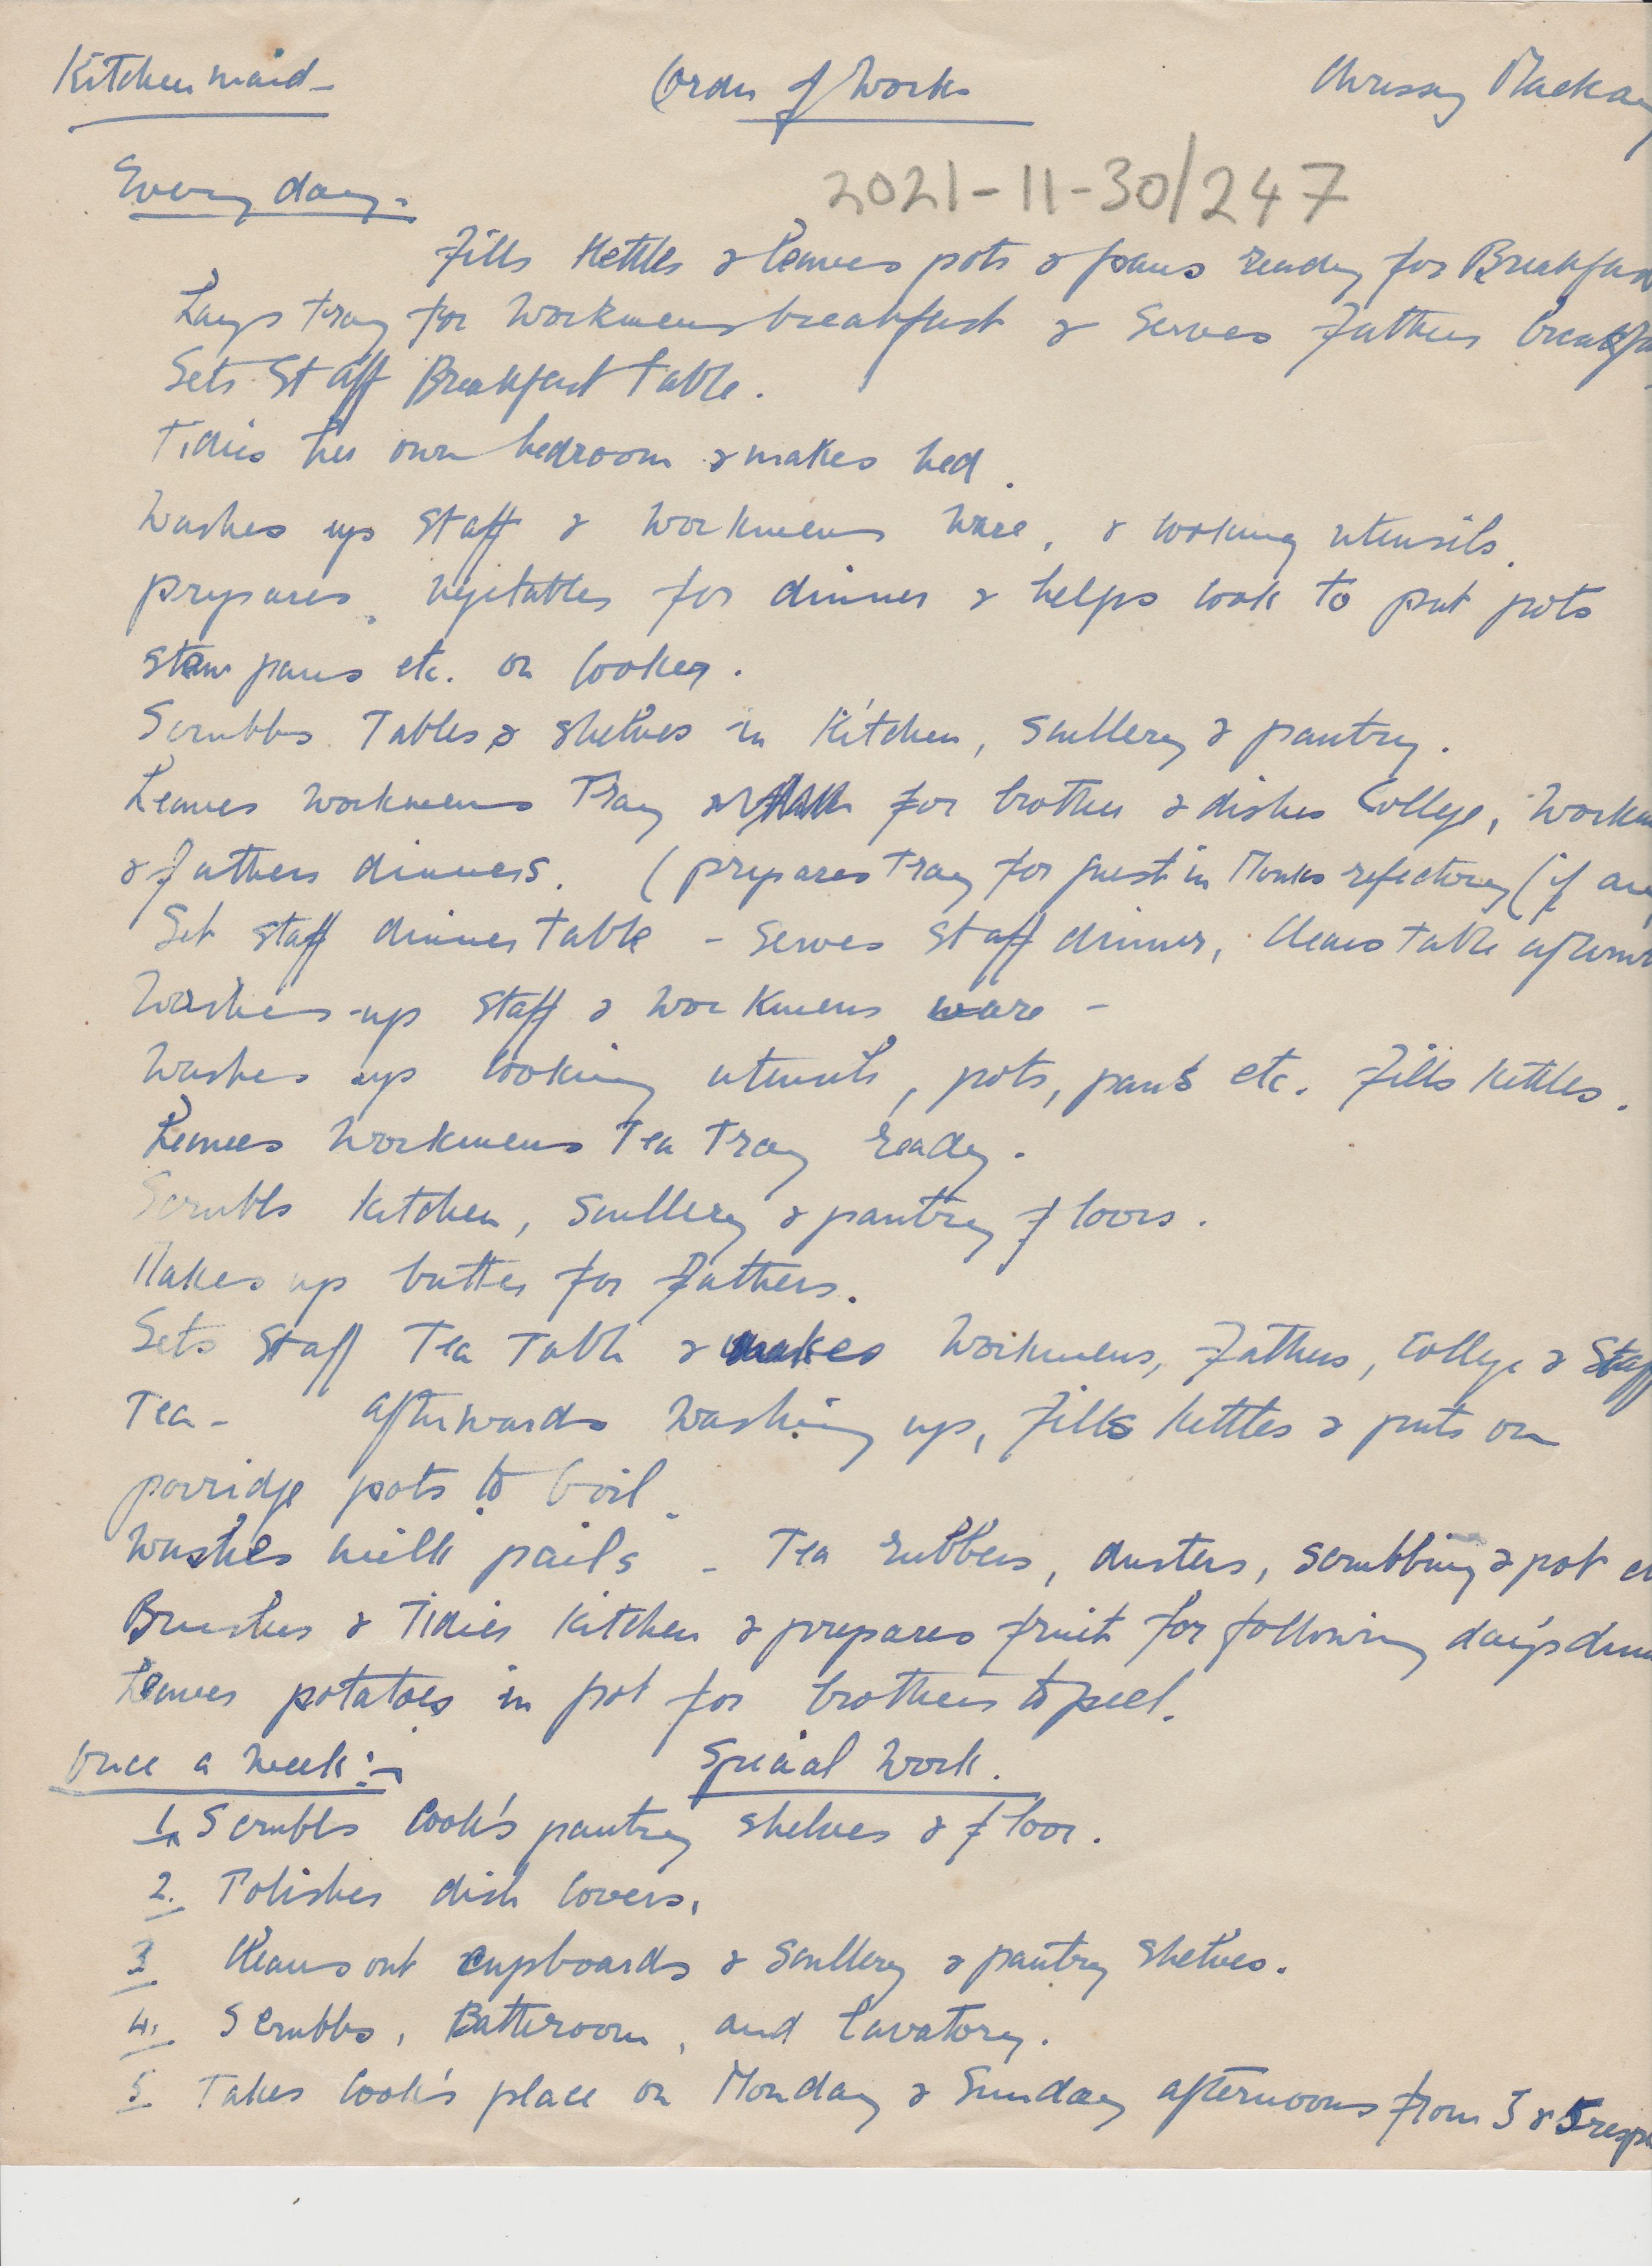 Kitchen maid - Order of Work Chrissy Mackay
Every day.
2021-11-30/247
Fills Kettles & leaves pots & pans ready for Breakfast
Lays tray for workmens breakfast & Serves Fathers breakfa
Sets Staff Breakfast table.
Tidies her own bedroom & makes bed.
Washes up Staff & workmens ware, & cooking utensils.
prepares vegitables for dinner & helps cook to put pots
stew pans etc. on cooker.
Scrubbs Tables & shelves in Kitchen, Scullery & pantry.
Leaves workmens Tray for brother & dishes College, Workm
& fathers dinners. (prepares Tray for guest in Monks refectory (if any
Set staff dinner table - Serves Staff dinner, Clears table afterw
Washes-up Staff & Workmens ware -
Washes up cooking utensils, pots, pans etc. Fills Kettles.
Leaves Workmens Tea Tray ready.
Scrubbs Kitchen, Scullery & pantry floors.
Makes up butter for Fathers.
Sets Staff Tea Table & makes Workmens, Fathers, College & Staff
Tea - afterwards Washing up, Fills Kettles & puts on
porridge pots to boil.
Washes milk pails - Tea rubbers, dusters, scrubbing & pot cl
Brushes & Tidies Kitchen & prepares fruit for following day's dinn
Leaves potatoes in pot for brothers to peel.
Once a week:- Special Work.
1. Scrubbs Cook's pantry shelves & floor.
2. Polishes dish covers.
3 Cleans out cupboards & Scullery & pantry shelves.
4. Scrubbs, Bathroom, and lavatory.
5. Takes Cook's place on Monday & Sunday afternoons from 3 & 5 resp